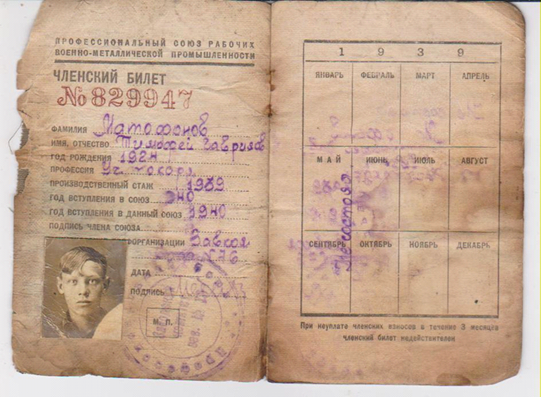 ПРОФЕССИОНАЛЬНЫЙ СОЮЗ РАБОЧИХ
ВОЕННО-МЕТАЛЛИЧЕСКОЙ ПРОМЫШЛЕННОСТИ
ЧЛЕНСКИЙ БИЛЕТ
№ 829947
ФАМИЛИЯ Матофонов
ИМЯ, ОТЧЕСТВО Тимофей
ГОД РОЖДЕНИЯ 1924
ПРОФЕССИЯ Уч. токаря
ПРОИЗВОДСТВЕННЫЙ СТАЖ 1939
ГОД ВСТУПЛЕНИЯ В СОЮЗ 940
ГОД ВСТУПЛЕНИЯ В ДАННЫЙ СОЮЗ 1940
ПОДПИСЬ ЧЛЕНА СОЮЗА
ОРГАНИЗАЦИИ
ДАТА
ПОДПИСЬ
М. П.
1 9 3 9
ЯНВАРЬ ФЕВРАЛЬ МАРТ АПРЕЛЬ
МАЙ ИЮНЬ ИЮЛЬ АВГУСТ
СЕНТЯБРЬ ОКТЯБРЬ НОЯБРЬ ДЕКАБРЬ
При неуплате членских взносов в течение 3 месяцев
членский билет недействителен